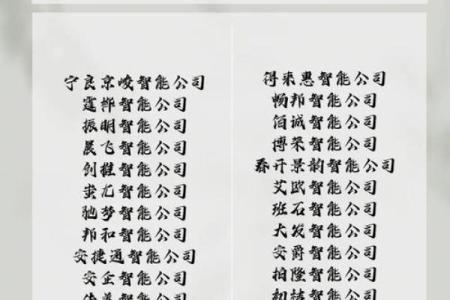 宁良京峻智能公司
霆桦智能公司
振明智能公司
晨飞智能公司
创握智能公司
萤汇智能公司
驰梦智能公司
邦和智能公司
安捷通智能公司
安企智能公司
得来惠智能公司
畅邦智能公司
佰诚智能公司
博荣智能公司
春开景韵智能公司
艾欧智能公司
班石智能公司
大发智能公司
安爵智能公司
柏隆智能公司